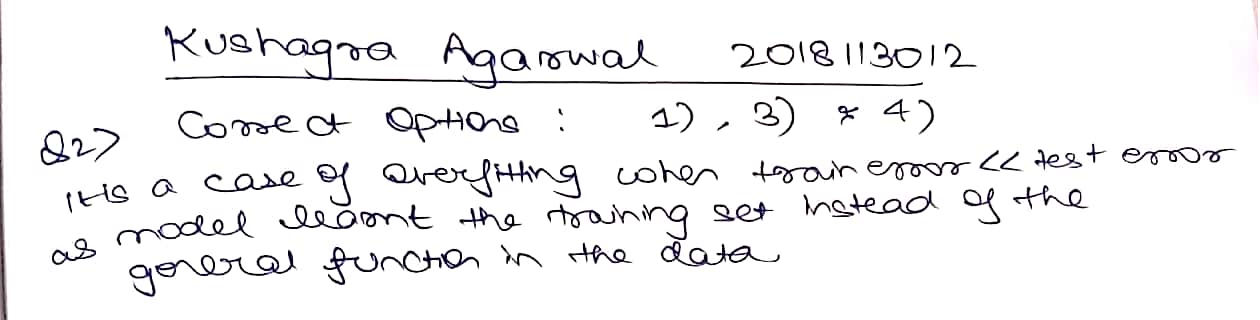 Kushagra Agarwal 2018113012
Q2> Correct Options : 1), 3) & 4)
It is a case of overfitting when train error << test error
as model learnt the training set instead of the
general function in the data